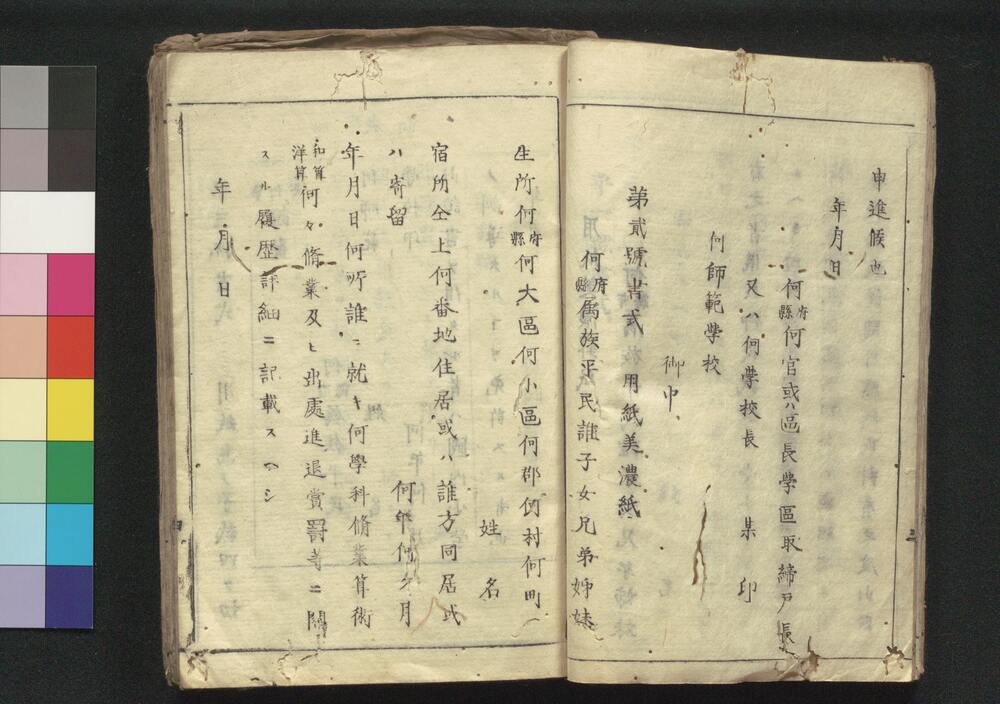 申進候也
年月日
何府縣何官或ハ區長學區取締戸長
何師範學校又ハ何學校長 某 印
御中
第貳號書式 用紙美濃紙
何府縣属族平民誰子女兄弟姉妹
姓名
生所何府縣何大區何小區何郡何村何町
宿所仝上何番地住居或ハ誰方同居或
ハ寄留 何年何ヶ月
年月日何所誰ニ就キ何學科脩業算術
和算洋算何々脩業及ヒ出處進退賞罰等ニ關
スル履歴詳細ニ記載スヘシ
年月日
三
四